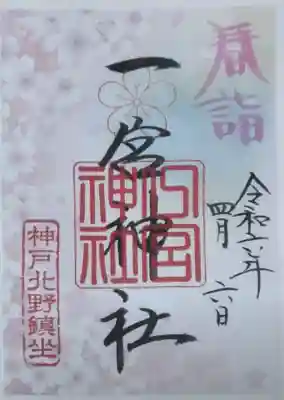 春詣
令和六年
四月 六日
一宮神社
一宮
神社
神戸北野鎮坐